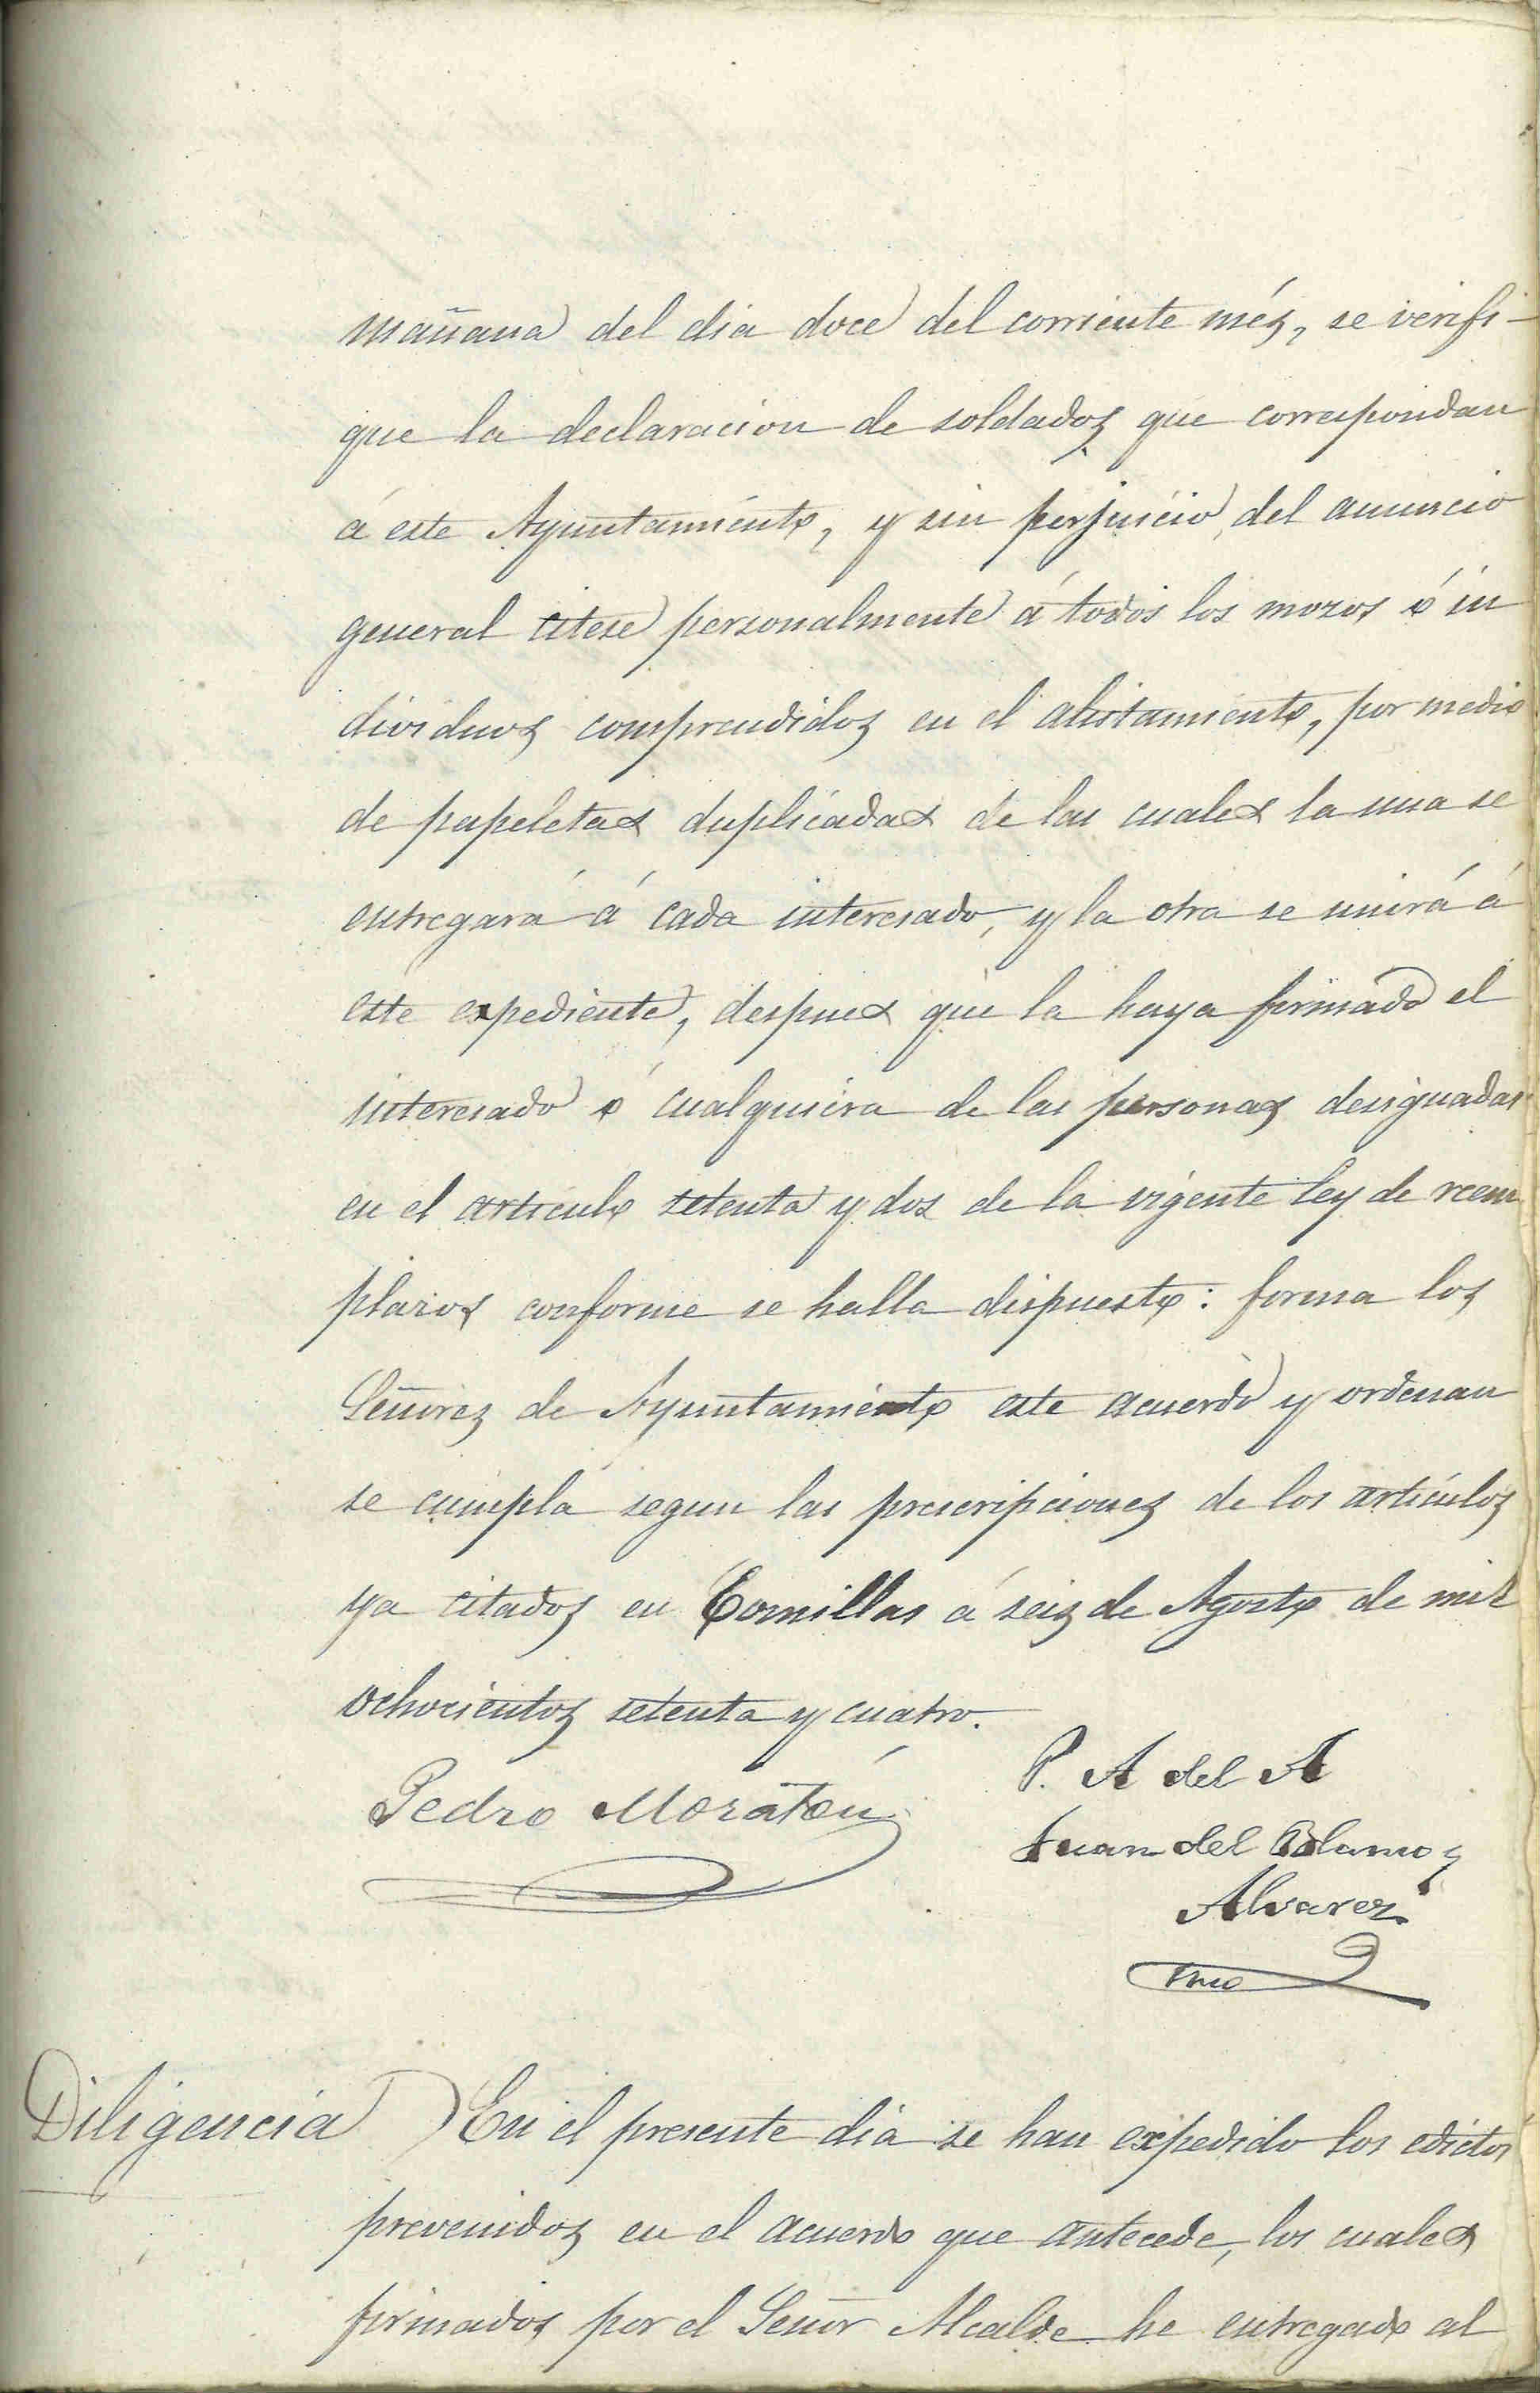 mañana del dia doce del corriente més, se verifi-
que la declaracion de soldados que correspondan
á este Ayuntamiento, y sin perjuicio, del anuncio
general citese personalmente á todos los mozos ó in
dividuos comprendidos en el alistamiento, por medio
de papeletas duplicadas de las cuales la una se
entregará á cada interesado, y la otra se unirá á
este expediente, despues que la haya firmado el
interesado ó cualquiera de las personas designadas
en el articulo setenta y dos de la vigente ley de reem
plazos conforme se halla dispuesto: forma los
Señores de Ayuntamiento este acuerdo y ordenan
se cumpla segun las prescripciones de los artículos
ya citados en Comillas á seis de Agosto de mil
ochocientos setenta y cuatro.
Pedro Moratón
P. A del A
Juan del Alamo y
Alvarez
Srio
Diligencia) En el presente dia se han expedido los edictos
prevenidos en el acuerdo que antecede, los cuales
firmados por el Señor Alcalde he entregado al